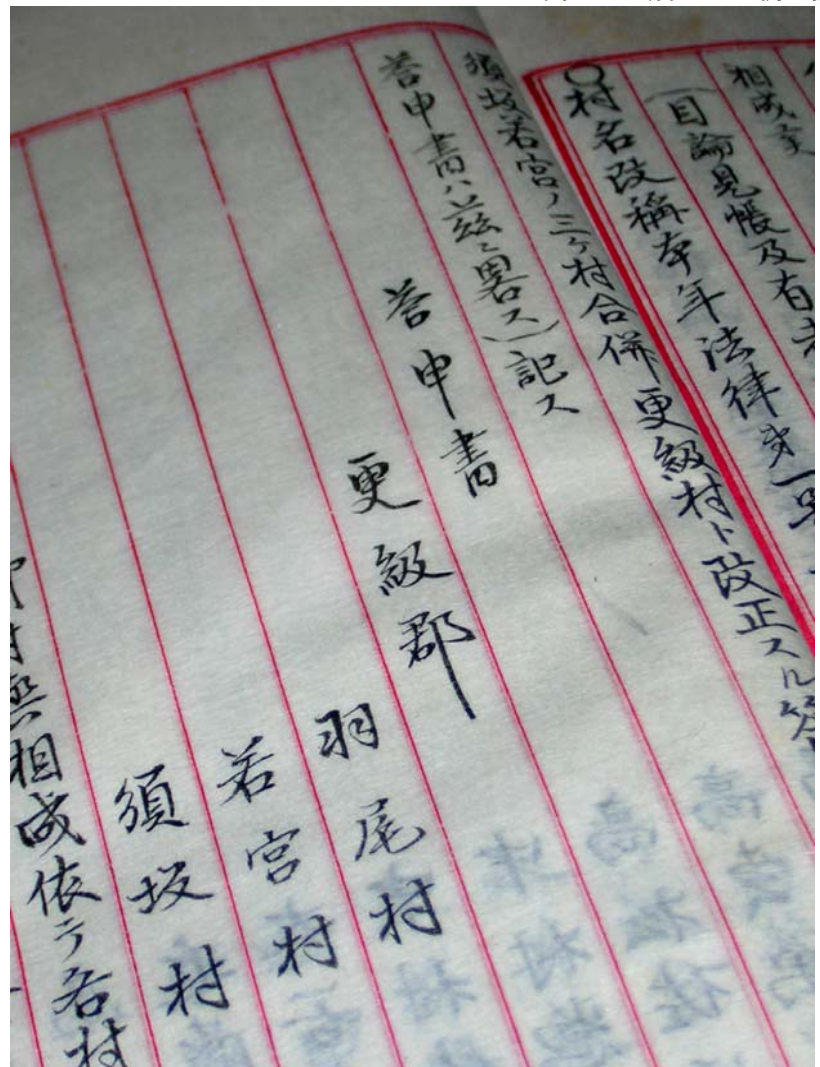 相成
(目論見帳及有
○村名改稱本年法律第一
須坂若宮ノ三ケ村合併更級村ト改正スル答
答申書ハ茲ニ畧ス)記ス
答申書
更級郡
羽尾村
若宮村
須坂村
相成依テ各村